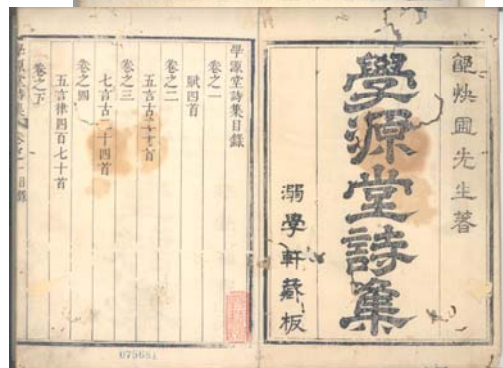 先生著
學源堂詩集
溺學軒藏板
學源堂詩集目錄
卷之一
賦四首
卷之二
五言古二十首
卷之三
七言古二十四首
卷之四
五言律四百七十首
卷之下
學源堂詩集
目錄
075681